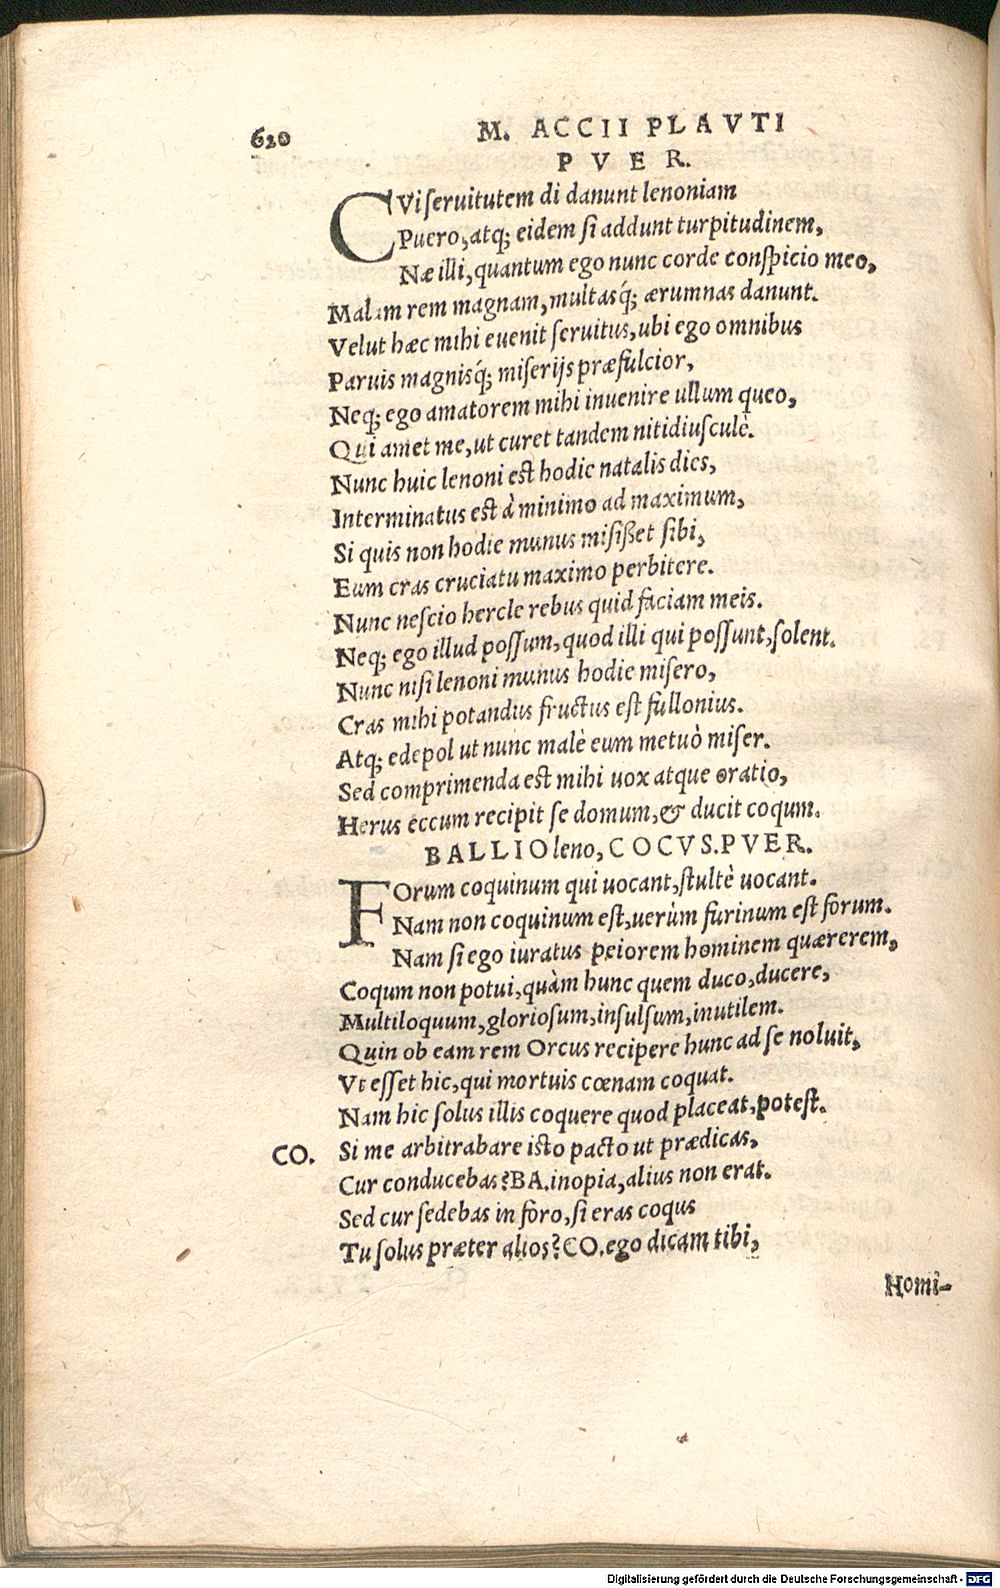 620 M. ACCII PLAVTI
PVER.
CVi seruitutem di danunt lenoniam
Puero, atq; eidem si addunt turpitudinem,
Næ illi, quantum ego nunc corde conspicio meo,
Malam rem magnam, multasq́; ærumnas danunt.
Velut hæc mihi euenit seruitus, ubi ego omnibus
Paruis magnisq́; miserijs præfulcior,
Neq; ego amatorem mihi inuenire ullum queo,
Qui amet me, ut curet tandem nitidiusculè.
Nunc huic lenoni est hodie natalis dies,
Interminatus est à minimo ad maximum,
Si quis non hodie munus misißet sibi,
Eum cras cruciatu maximo perbitere.
Nunc nescio hercle rebus quid faciam meis.
Neq; ego illud possum, quod illi qui possunt, solent.
Nunc nisi lenoni munus hodie misero,
Cras mihi potandus fructus est fullonius.
Atq; edepol ut nunc malè eum metuò miser.
Sed comprimenda est mihi uox atque oratio,
Herus eccum recipit se domum, & ducit coqum.
BALLIO leno, COCVS. PVER.
FOrum coquinum qui uocant, stultè uocant.
Nam non coquinum est, uerùm furinum est forum.
Nam si ego iuratus peiorem hominem quærerem,
Coqum non potui, quàm hunc quem duco, ducere,
Multiloquum, gloriosum, insulsum, inutilem.
Quin ob eam rem Orcus recipere hunc ad se noluit,
Vt esset hic, qui mortuis cœnam coquat.
Nam hic solus illis coquere quod placeat, potest.
CO. Si me arbitrabare isto pacto ut prædicas,
Cur conducebas? BA. inopia, alius non erat.
Sed cur sedebas in foro, si eras coqus
Tu solus præter alios? CO. ego dicam tibi,
Homi-
Digitalisierung gefördert durch die Deutsche Forschungsgemeinschaft - DFG